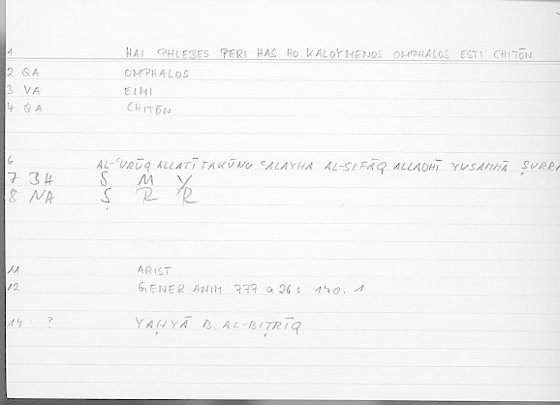 1 HAI PHLEBES PERI HAS HO KALOYMENOS OMPHALOS ESTI CHITŌN
2 QA OMPHALOS
3 VA EIMI
4 QA CHITŌN
6 AL-ʿURŪQ ALLATĪ TAKŪNU ʿALAYHA AL-SIFĀQ ALLADHĪ YUSAMMĀ ṢURRA
7 BH S M Y
8 NA Ṣ R R
11 ARIST
12 GENER ANIM 777 a 26; 140.1
14 ? YAḤYĀ B. AL-BIṬRĪQ